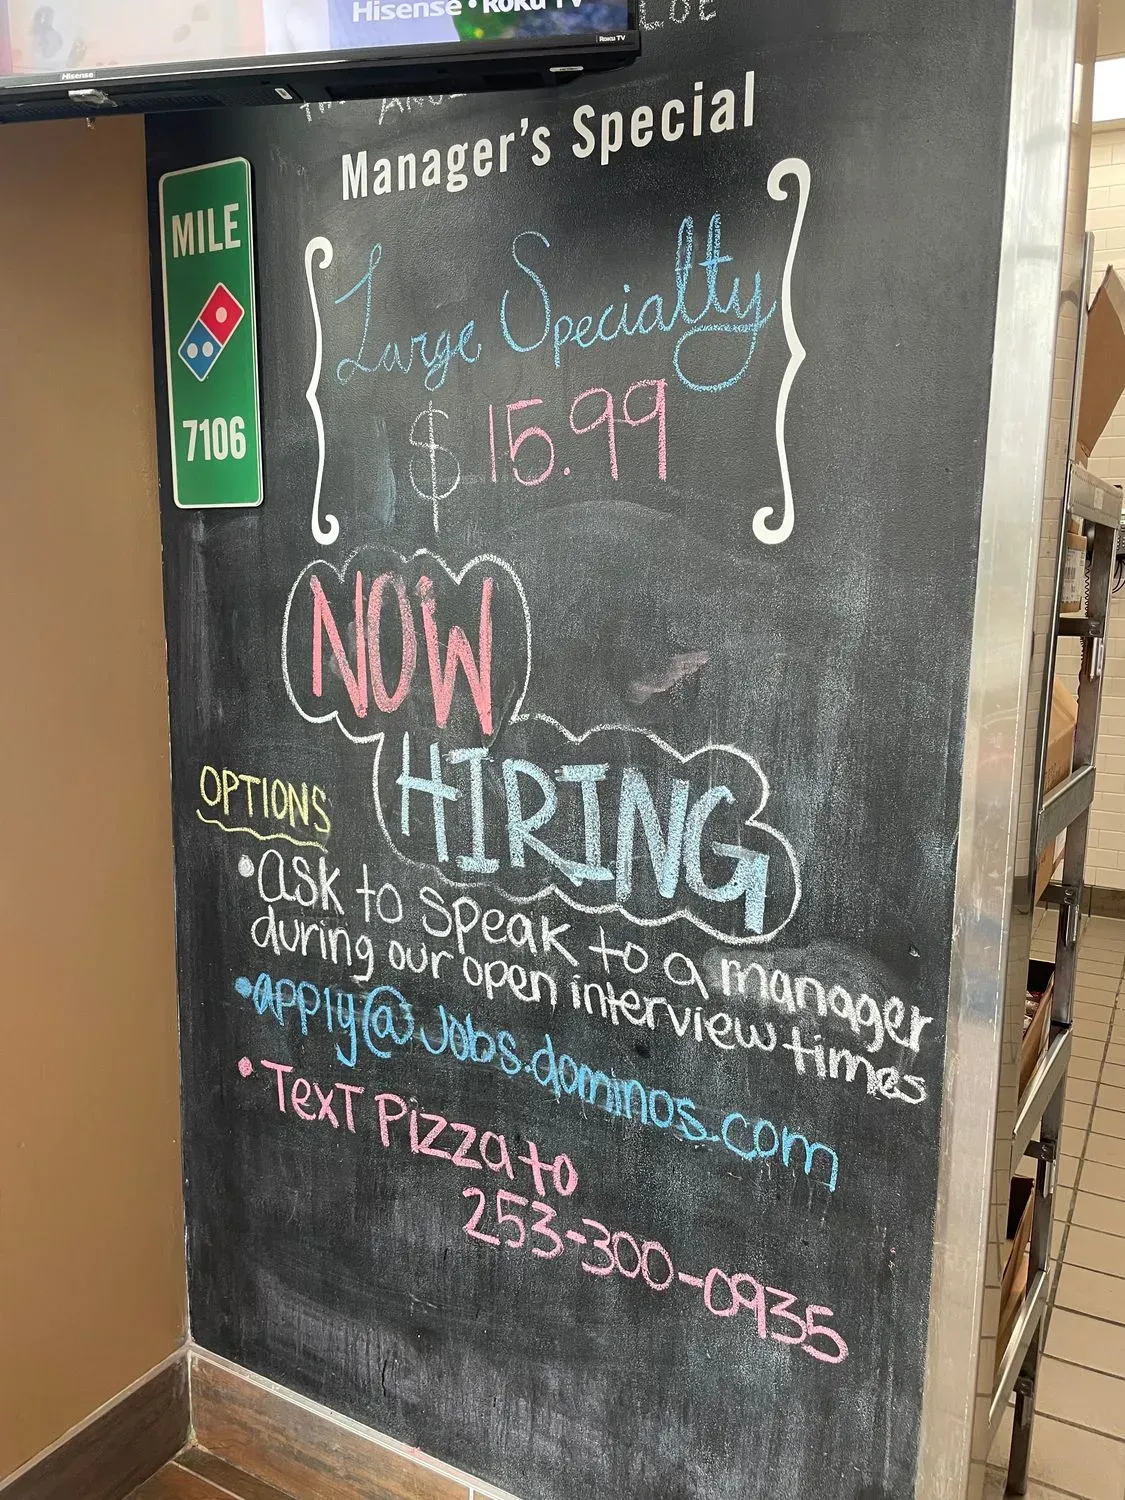 Hisense • Roku TV
Hisense
Roku TV
Manager's Special
MILE
7106
Large Specialty
$ 15.99
NOW
HIRING
OPTIONS
• ask to speak to a manager
during our open interview times
• apply@jobs.dominos.com
• Text Pizza to
253-300-0935